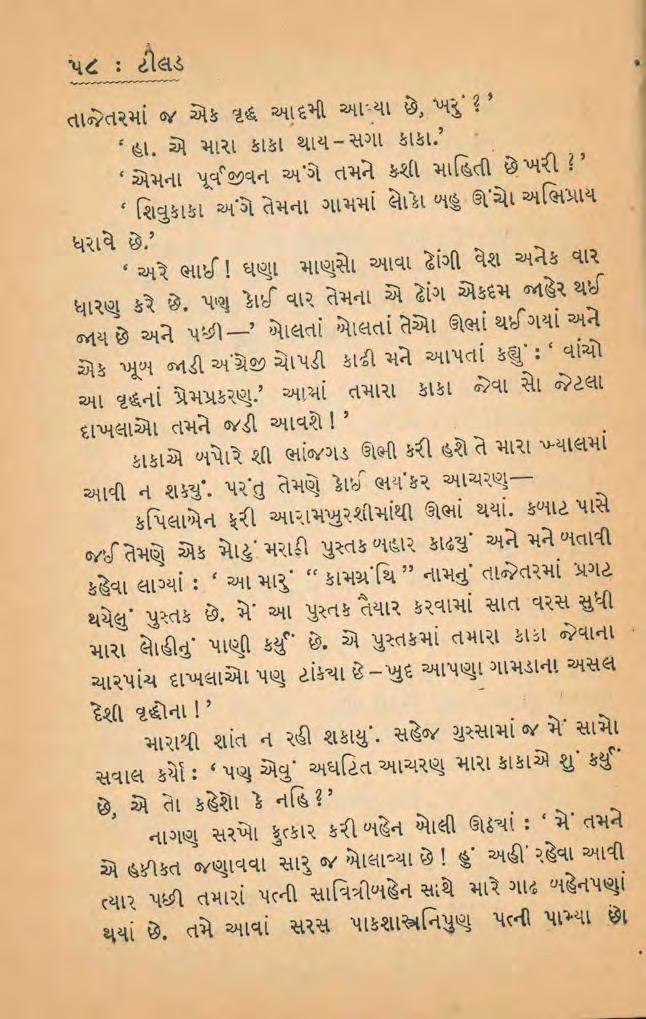 ૫૮ : ટીલડ
તાજેતરમાં જ એક વૃદ્ધ આદમી આવ્યા છે, ખરું ?’
‘ હા. એ મારા કાકા થાય–સગા કાકા.’
‘ એમના પૂર્વજીવન અંગે તમને કશી માહિતી છે ખરી ?’
‘ શિવુકાકા અંગે તેમના ગામમાં લોકો બહુ ઊંચો અભિપ્રાય
ધરાવે છે.’
‘ અરે ભાઈ ! ઘણા માણસો આવા ઢોંગી વેશ અનેક વાર
ધારણ કરે છે. પણ કોઈ વાર તેમના એ ઢોંગ એકદમ જાહેર થઈ
જાય છે અને પછી—’ બોલતાં બોલતાં તેઓ ઊભાં થઈ ગયાં અને
એક ખૂબ જાડી અંગ્રેજી ચોપડી કાઢી મને આપતાં કહ્યું : ‘ વાંચો
આ વૃદ્ધનાં પ્રેમપ્રકરણ.’ આમાં તમારા કાકા જેવા સો જેટલા
દાખલાઓ તમને જડી આવશે ! ’
કાકાએ બપોરે શી ભાંજગડ ઊભી કરી હશે તે મારા ખ્યાલમાં
આવી ન શક્યું. પરંતુ તેમણે કોઈ ભયંકર આચરણ—
કપિલાબેન ફરી આરામખુરશીમાંથી ઊભાં થયાં. કબાટ પાસે
જઈ તેમણે એક મોટું મરાઠી પુસ્તક બહાર કાઢ્યું અને મને બતાવી
કહેવા લાગ્યાં : ‘ આ મારું “ કામગ્રંથિ ” નામનું તાજેતરમાં પ્રગટ
થયેલું પુસ્તક છે. મેં આ પુસ્તક તૈયાર કરવામાં સાત વરસ સુધી
મારા લોહીનું પાણી કર્યું છે. એ પુસ્તકમાં તમારા કાકા જેવાના
ચારપાંચ દાખલાઓ પણ ટાંક્યા છે – ખુદ આપણા ગામડાના અસલ
દેશી વૃદ્ધોના ! ’
મારાથી શાંત ન રહી શકાયું. સહેજ ગુસ્સામાં જ મેં સામો
સવાલ કર્યો : ‘ પણ એવું અઘટિત આચરણ મારા કાકાએ શું કર્યું
છે, એ તો કહેશો કે નહિ ?’
નાગણ સરખો ફુત્કાર કરી બહેન બોલી ઊઠ્યાં : ‘ મેં તમને
એ હકીકત જણાવવા સારુ જ બોલાવ્યા છે ! હું અહીં રહેવા આવી
ત્યાર પછી તમારાં પત્ની સાવિત્રીબહેન સાથે મારે ગાઢ બહેનપણાં
થયાં છે. તમે આવાં સરસ પાકશાસ્ત્રનિપુણ પત્ની પામ્યા છો